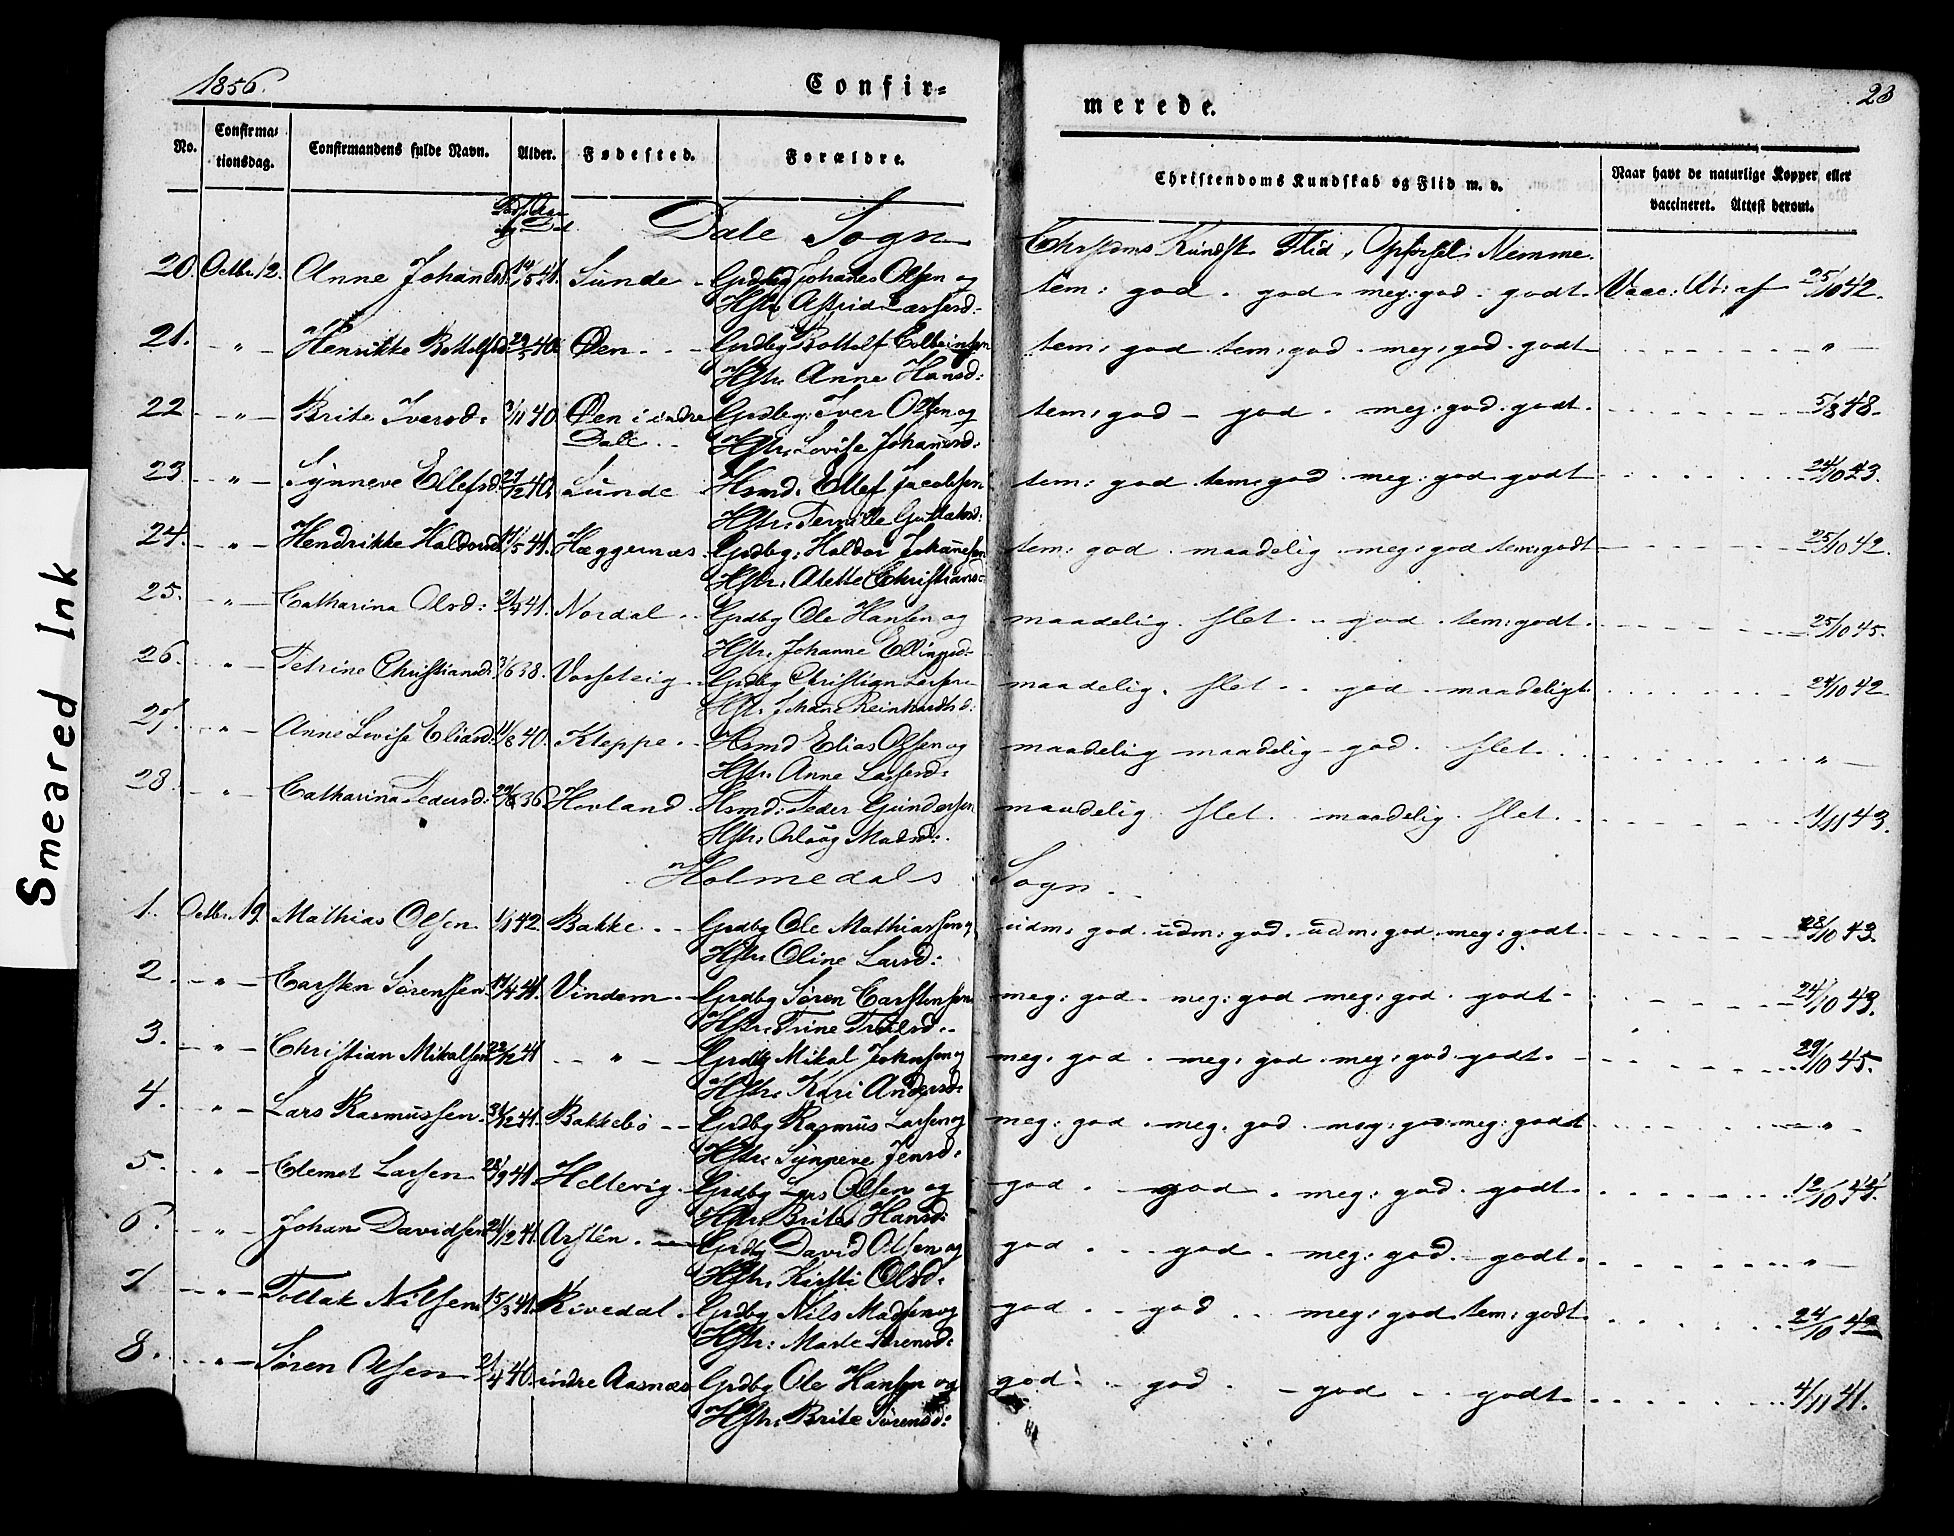 1856.
Confir=
merede.
23
No.
Confirma=
tionsdag.
Confirmandens fulde Navn.
Alder.
Fødested.
Forældre.
Christendoms Kundskab og Flid m. v.
Naar havt de naturlige Kopper eller
vaccineret. Attest derom.
Dale Sogn
Christoms Kundsk Flid, Opførsel. Nemme.
20. Octbr 12. Anne Johannesd. 10/5 41. Sunde Grdbg Johanes Olsen og tem: god. god. meg: god. godt. Vacc: At: af 25/10 42.
Hstr: Astrid Lassesd:
21. - " - Henrikke Bottolfsd 29/5 40 Øen Grdbg Bottolf tem: god tem: god. meg: god. godt - " -
Hstr. Anne Hansd:
22 - " - Brite Iversd: 3/11 40 Øen i indre Grdbg: Iver Olsen og tem: god - god. meg: god. godt. 5/8 48.
Dale Hstr. Lovise Johannesd:
23 - " - Synneve Ellefsd. 27/12 40. Sunde Hsmd. Ellef Jacobsen tem: god tem: god meg: god godt 24/10 43.
Hstr: Pernille
24. - " - Hendrikke Haldorsd 17/5 41. Heggernæs Grdbg: Haldor Johanesen tem: god. maadelig. meg: god tem: godt 25/10 42.
Hstr: Alette Christiansd
25. - " - Catharina Olsd: 2/4 41. Nordal Grdbg Ole Hansen og maadelig. slet god tem: godt. 25/10 45.
Hstr: Johanne Ellingsd:
26. - " - Petrine Christiansd. 3/6 38. Vossteig Grdbg Christian Larsen maadelig. slet. god. maadeligt 24/10 42
Hstr. Johane Reinhardtsd:
27. - " - Anne Lovise Eliasd: 11/8 40. Kleppe Hsmd Elias Olsen og maadelig maadelig god. slet. - " -
Hstr: Anne Lassesd:
28. - " - Catharina Pedersd: 36 Hovland Hsmd: Peder Gundersen maadelig slet. maadelig. slet. 1/11 43.
Hstr: Madsd:
Holmedals Sogn.
1. Octbr. 19. Mathias Olsen 1/1 42. Bakke Grdbg Ole Mathiassen og udm: god. udm: god. udm: god. meg: godt. 28/10 43.
Hstr: Oline Larsd:
2 - " - Carsten Sørenssen 17/4 41. Vindem Grdbg Søren Carstensen meg: god. meg: god meg: god. godt 24/10 43.
Hstr: Trine
3. - " - Christian Mikalsen 22/12 41 - " - Grdbg Mikal Johnsen og meg: god. meg: god. meg: god. godt. 29/10 45.
Hstr: Kari Andersd:
4. - " - Lars Rasmussen. 31/12 41. Bakkebø Grdbg Rasmus Larsen og meg: god. meg. god. meg: god. meg: godt - " -
Hstr: Synneve Jensd:
5. - " - Clemet Larsen 28/9 41. Heltevig Grdbg Lars Olsen og god. god. meg: god. godt. 12/10 44.
Hstr. Brite Hansd:
6. - " - Johan Davidsen 24/12 41. Arsten Grdbg David Olsen og god. god. meg: god. godt. - " -
Hstr. Kirsti Olsd:
7 - " - Tollak Nilsen 15/3 41. Rivedal. Grdbg Nils Madsen og god god meg: god tem: godt. 24/10
Hstr: Marte Sørensd:
8. - " - Søren Olsen 21/4 40. indre Aasnæs Grdbg Ole Hansen og god. god. god godt 4/11 41.
Hstr. Brite Sørensd:
Smeared Ink